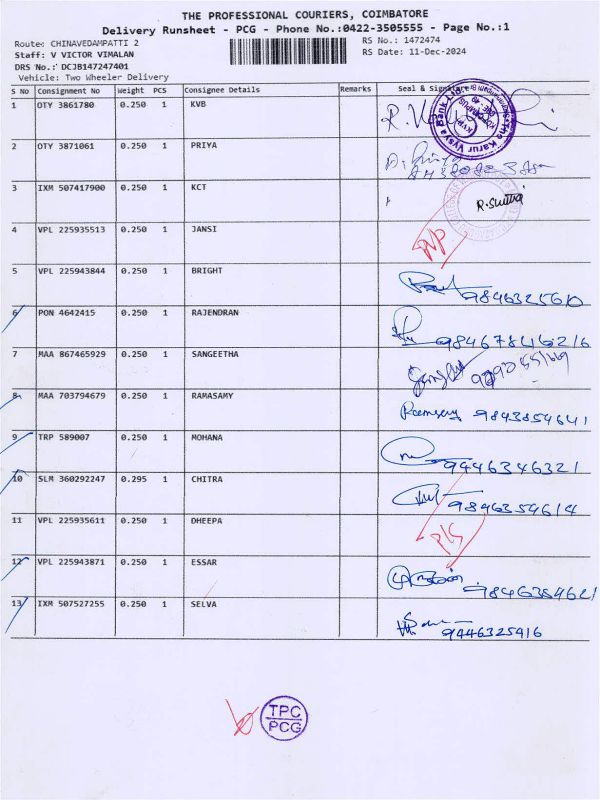 THE PROFESSIONAL COURIERS, COIMBATORE
Delivery Runsheet - PCG - Phone No.:0422-3505555 - Page No.:1
Route: CHINAVEDAMPATTI 2
RS No.: 1472474
Staff: V VICTOR VIMALAN
RS Date: 11-Dec-2024
DRS No.: DCJB147247401
Vehicle: Two Wheeler Delivery
S No Consignment No Weight PCS Consignee Details Remarks Seal & Signature
1 OTY 3861780 0.250 1 KVB
2 OTY 3871061 0.250 1 PRIYA
3 IXM 507417900 0.250 1 KCT R. Smitha
4 VPL 225935513 0.250 1 JANSI
5 VPL 225943844 0.250 1 BRIGHT 9846325610
6 PON 4642415 0.250 1 RAJENDRAN 9846784616216
7 MAA 867465929 0.250 1 SANGEETHA
8 MAA 703794679 0.250 1 RAMASAMY Ramsamy 9843854641
9 TRP 589007 0.250 1 MOHANA 9446346321
10 SLM 360292247 0.295 1 CHITRA 9846354614
11 VPL 225935611 0.250 1 DHEEPA
12 VPL 225943871 0.250 1 ESSAR 9846384621
13 IXM 507527255 0.250 1 SELVA 9446325416
TPC
PCG